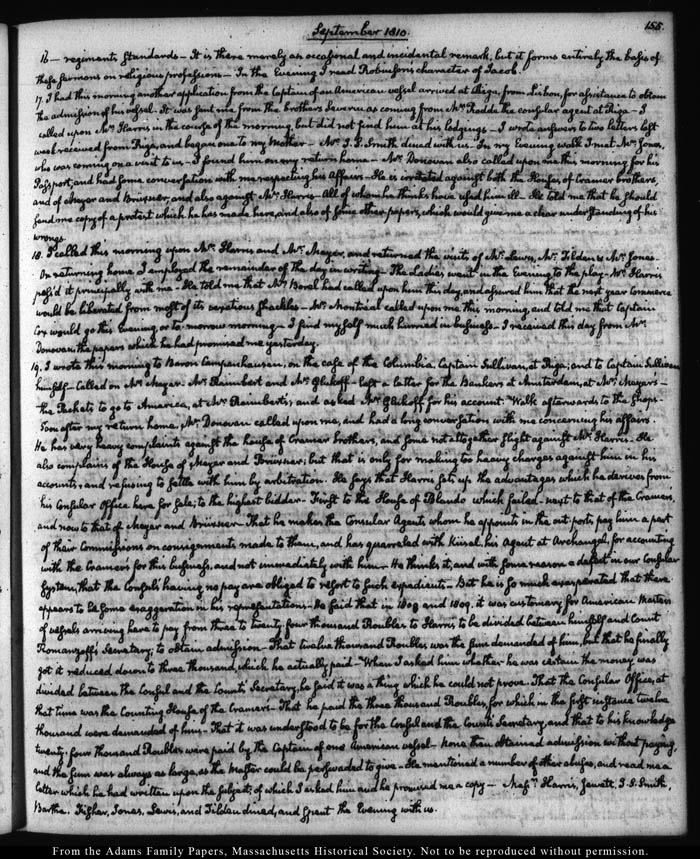 September 1810.
155.
16 — regiments Standards — It is there merely as occasional and incidental remark, but it forms entirely the basis of
these sermons on religious professions — In the Evening I read Robinson's character of Jacob.
17. I had this morning another application from the Captain of an American vessel arrived at Riga, from Lisbon, for assistance to obtain
the admission of his vessel. It was sent me from the brothers Severin as coming from Mr. Rodde the consular agent at Riga — I
called upon Mr. Harris in the course of the morning, but did not find him at his lodgings — I wrote answers to two letters last
week received from Riga, and began one to my Mother — Mr. I. S. Smith dined with us. In my Evening walk I met Mr. Jones,
who was coming on a visit to us — I found him on my return home — Mr. Donovan also called upon me this morning for his
Passport, and had some conversation with me respecting his Affairs — He is irritated against both the Houses of Cramer brothers,
and of Meyer and Brüxner, and also against Mr. Harris — All of whom he thinks have used him ill — He told me that he should
send me copy of a protest which he has made here, and also of some other papers, which would give me a clear understanding of his
wrongs.
18. I called this morning upon Mr. Harris and Mr. Meyer, and returned the visits of Mr. Lewis, Mr. Tilden & Mr. Jones.
On returning home I employed the remainder of the day in writing — The Ladies went in the Evening to the play — Mr. Harris
pass'd it principally with me — He told me that Mr. Borel had called upon him this day, and assured him that the next year Commerce
would be liberated from most of its vexatious shackles — Mr. Montréal called upon me this morning, and told me that Captain
Cox would go this Evening, or to-morrow morning — I find myself much hurried in business — I received this day from Mr.
Donovan the papers which he had promised me yesterday.
19. I wrote this morning to Baron Campenhausen, on the case of the Columbia, Captain Sullivan, at Riga; and to Captain Sullivan
himself — Called on Mr. Meyer. Mr. Raimbert and Mr. Glukoff — left a Letter for the Bankers at Amsterdam, at Mr. Meyer's —
the Packets to go to America, at Mr. Raimbert's, and asked Mr. Glukoff for his account. Walk afterwards to the Shops.
Soon after my return home, Mr. Donovan called upon me, and had a long conversation with me concerning his affairs.
He has very heavy complaints against the house of Cramer brothers, and some not altogether slight against Mr. Harris — He
also complains of the House of Meyer and Brüxner; but that is only for making too heavy charges against him in his
accounts, and refusing to settle with him by arbitration. He says that Harris sets up the advantages which he derives from
his Consular Office here for sale, to the highest bidder — First to the House of Blandow which failed — next to that of the Cramers,
and now to that of Meyer and Brüxner — That he makes the Consular Agents whom he appoints in the out ports pay him a part
of their Commissions on consignments made to them, and has quarreled with his Agent at Archangel, for accounting
with the Cramers for this business, and not immediately with him — He thinks it, and with some reason a defect in our Consular
System, that the Consuls having no pay are obliged to resort to such expedients — But he is so much exasperated that there
appears to be some exaggeration in his representations — He said that in 1808 and 1809. it was customary for American Masters
of vessels arriving here to pay from three to twenty-four thousand Roubles to Harris, to be divided between himself and Count
Romanzoff's Secretary, to obtain admission — That twelve thousand Roubles was the sum demanded of him, but that he finally
got it reduced down to three thousand, which he actually paid — When I asked him whether he was certain the money was
divided between the Consul and the Count's Secretary, he said it was a thing which he could not prove. That the Consular Office, at
that time was the Counting House of the Cramers — That he paid the three thousand Roubles, for which in the first instance twelve
thousand were demanded of him — That it was understood to be for the Consul and the Count's Secretary, and that to his knowledge
twenty-four thousand Roubles were paid by the Captain of one American vessel — None then obtained admission without paying,
and the sum was always as large, as the Master could be persuaded to give — He mentioned a number of other abuses, and read me a
letter which he had written upon the subject; of which I asked him and he promised me a copy — Messrs. Harris, Jewett, I. S. Smith,
Fisher, Jones, Lewis, and Tilden dined, and spent the Evening with us.
From the Adams Family Papers, Massachusetts Historical Society. Not to be reproduced without permission.